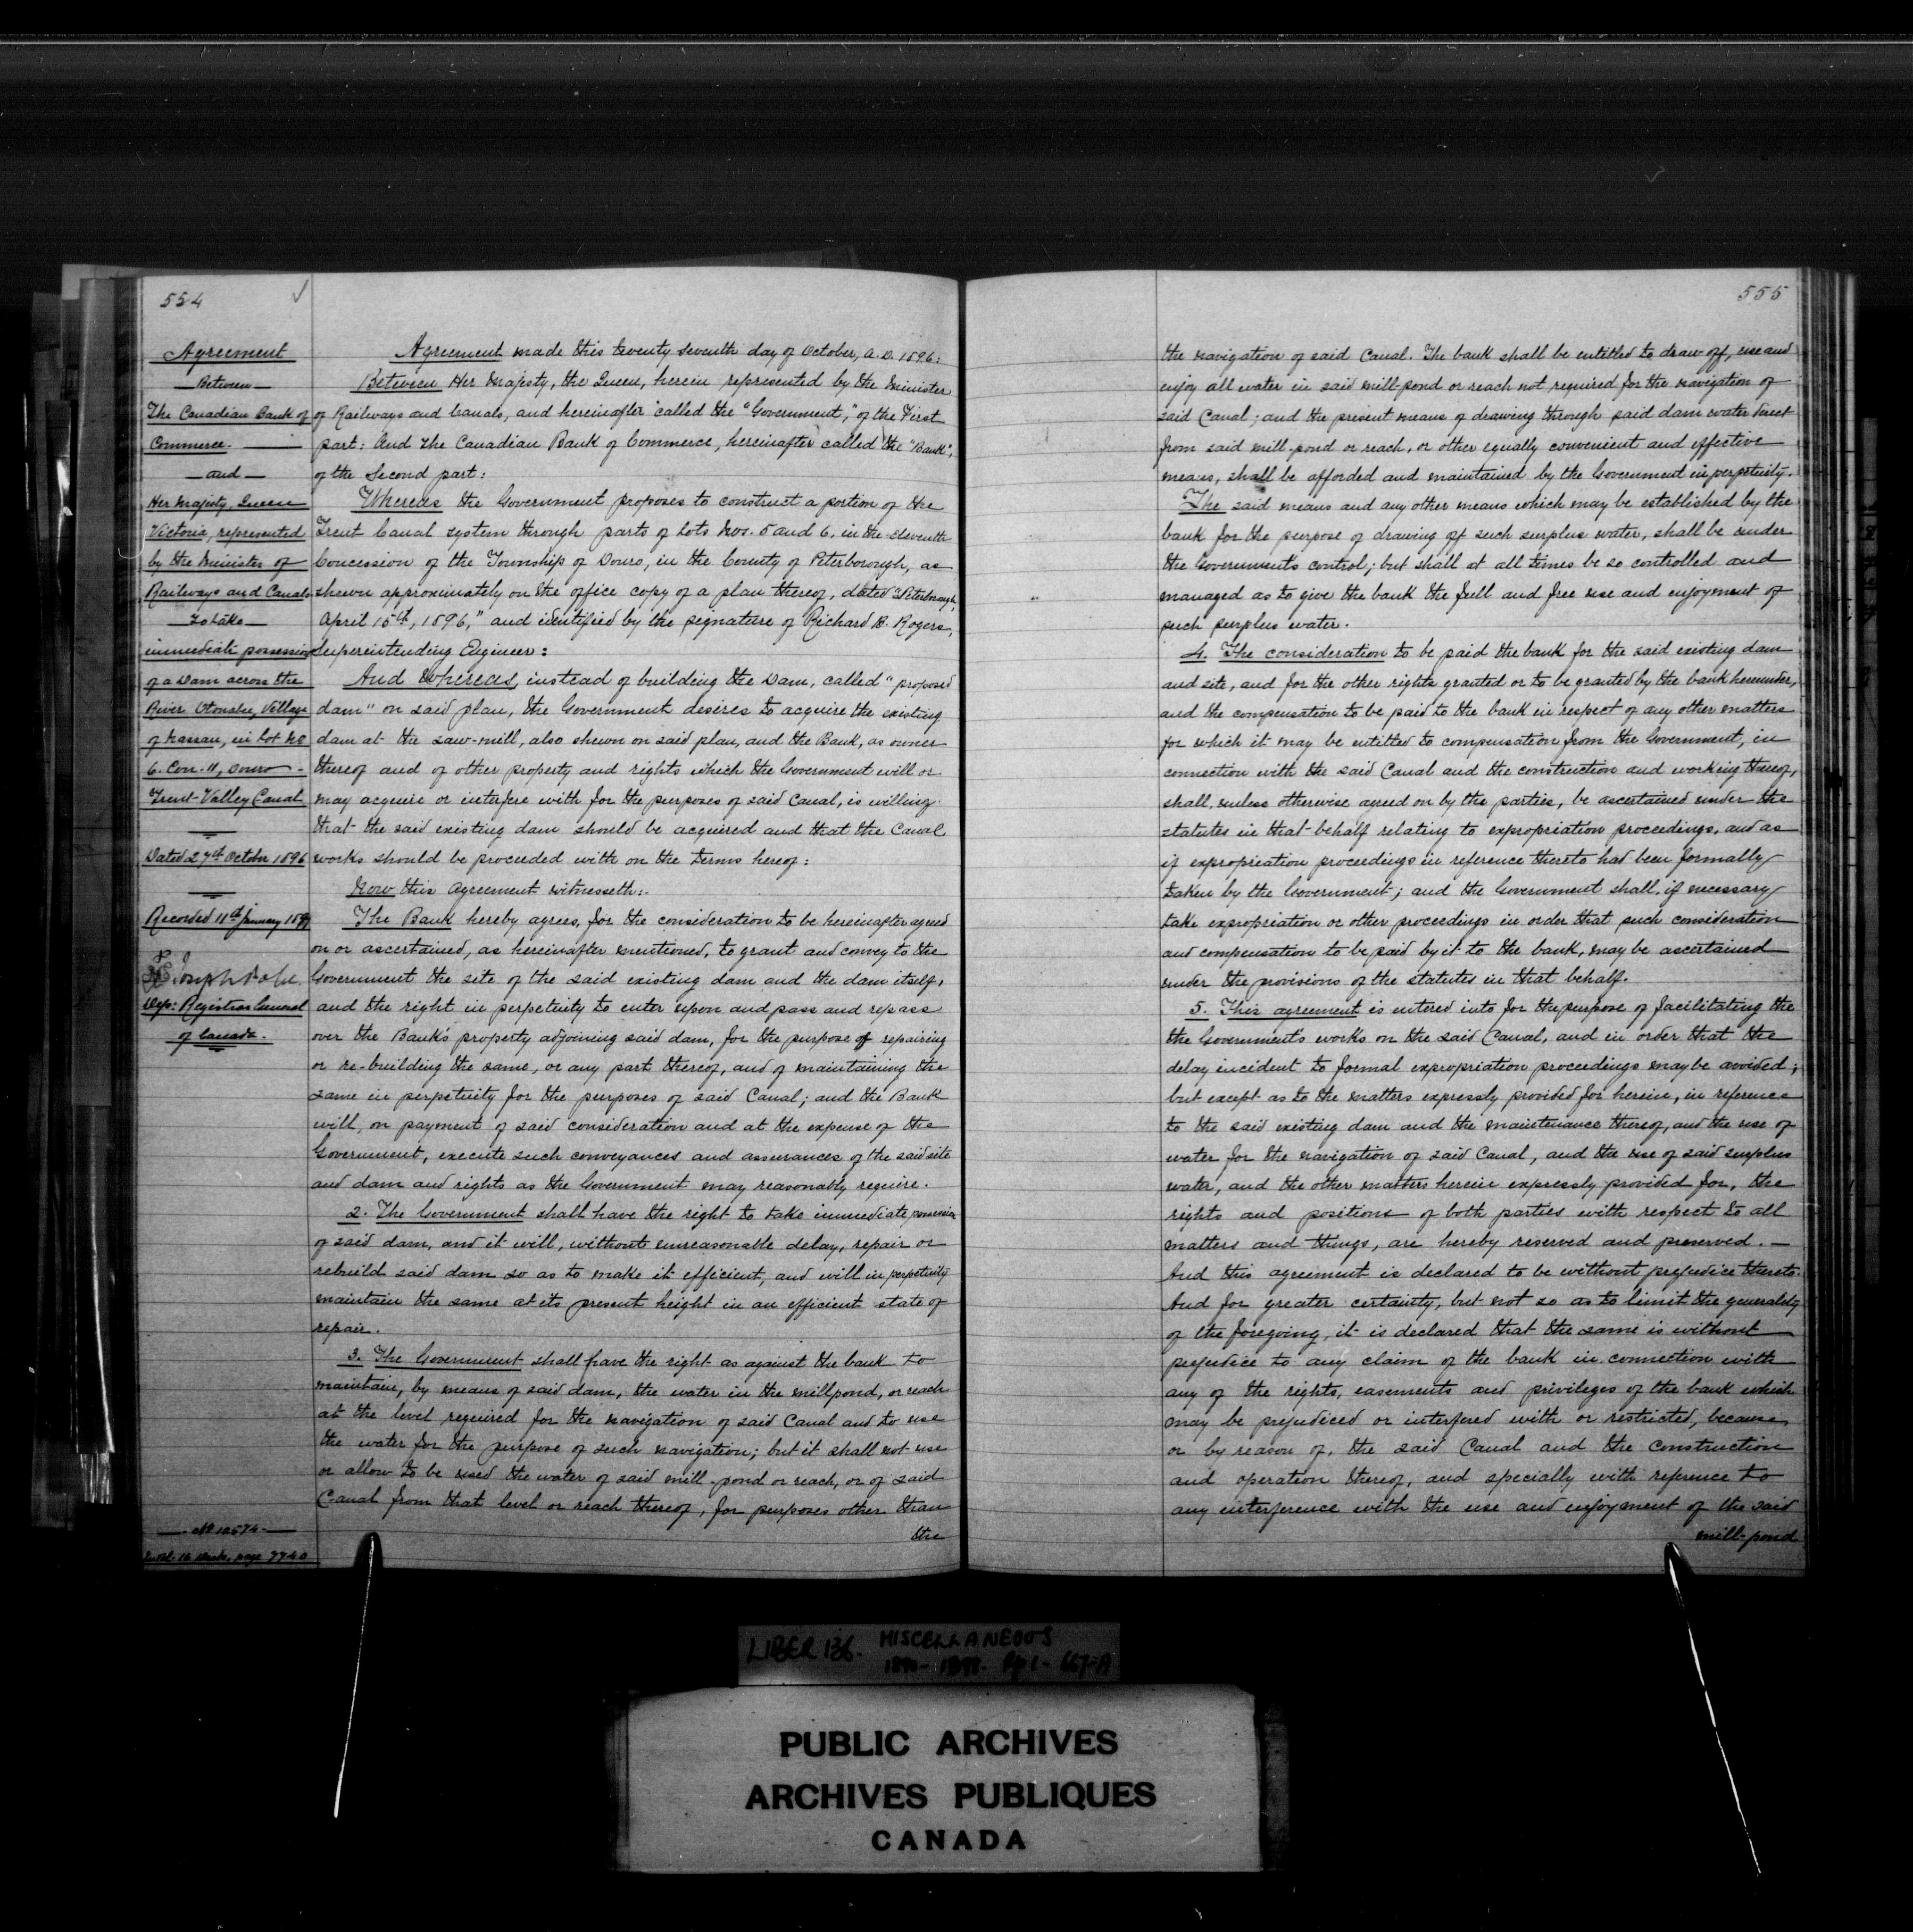 554
Agreement
Between
The Canadian Bank of
Commerce.
and
Her Majesty, Queen
Victoria, represented
by the Minister of
Railways and Canals
To take
immediate possession
of a Dam across the
River Otonabee, Village
of Nassau, in Lot No
6. Con. 11, Douro
Trent Valley Canal
Dated 27th October 1896
Recorded 11th January 1897
Dep: Registrar General
of Canada.
No 12574
page 7740
Agreement made this twenty seventh day of October, A.D. 1896:
Between Her Majesty, the Queen, herein represented by the Minister
of Railways and Canals, and hereinafter called the "Government", of the First
part: And The Canadian Bank of Commerce, hereinafter called the "Bank",
of the Second part:
Whereas the Government proposes to construct a portion of the
Trent Canal system through parts of Lots Nos. 5 and 6, in the Eleventh
Concession of the Township of Douro, in the County of Peterborough, as
shewn approximately on the office copy of a plan thereof, dated "Peterborough,
April 15th, 1896," and identified by the signature of Richard B. Rogers,
Superintending Engineer:
And Whereas, instead of building the Dam, called "proposed
dam" on said plan, the Government desires to acquire the existing
dam at the saw-mill, also shewn on said plan, and the Bank, as owner
thereof and of other property and rights which the Government will or
may acquire or interfere with for the purposes of said Canal, is willing
that the said existing dam should be acquired and that the Canal
works should be proceeded with on the terms hereof:
Now this Agreement witnesseth:.
The Bank hereby agrees, for the consideration to be hereinafter agreed
on or ascertained, as hereinafter mentioned, to grant and convey to the
Government the site of the said existing dam and the dam itself,
and the right in perpetuity to enter upon and pass and repass
over the Bank's property adjoining said dam, for the purpose of repairing
or re-building the same, or any part thereof, and of maintaining the
same in perpetuity for the purposes of said Canal; and the Bank
will, on payment of said consideration and at the expense of the
Government, execute such conveyances and assurances of the said site
and dam and rights as the Government may reasonably require.
2. The Government shall have the right to take immediate possession
of said dam, and it will, without unreasonable delay, repair or
rebuild said dam so as to make it efficient, and will in perpetuity
maintain the same at its present height in an efficient state of
repair.
3. The Government shall have the right as against the bank to
maintain, by means of said dam, the water in the millpond, or reach
at the level required for the navigation of said Canal and to use
the water for the purpose of such navigation; but it shall not use
or allow to be used the water of said mill-pond or reach, or of said
Canal from that level or reach thereof, for purposes other than
the
555
the navigation of said Canal. The bank shall be entitled to draw off, use and
enjoy all water in said mill-pond or reach not required for the navigation of
said Canal; and the present means of drawing through said dam water direct
from said mill-pond or reach, or other equally convenient and effective
means, shall be afforded and maintained by the Government in perpetuity.
The said means and any other means which may be established by the
bank for the purpose of drawing off such surplus water, shall be under
the Government's control; but shall at all times be so controlled and
managed as to give the bank the full and free use and enjoyment of
such surplus water.
4. The consideration to be paid the bank for the said existing dam
and site, and for the other rights granted or to be granted by the bank hereunder,
and the compensation to be paid to the bank in respect of any other matters
for which it may be entitled to compensation from the Government, in
connection with the said Canal and the construction and working thereof,
shall, unless otherwise agreed on by the parties, be ascertained under the
statutes in that behalf relating to expropriation proceedings, and as
if expropriation proceedings in reference thereto had been formally
taken by the Government; and the Government shall, if necessary
take expropriation or other proceedings in order that such consideration
and compensation to be paid by it to the bank, may be ascertained
under the provisions of the statutes in that behalf.
5. This agreement is entered into for the purpose of facilitating the
the Government's works on the said Canal, and in order that the
delay incident to formal expropriation proceedings may be avoided;
but except as to the matters expressly provided for herein, in reference
to the said existing dam and the maintenance thereof, and the use of
water for the navigation of said Canal, and the use of said surplus
water, and the other matters herein expressly provided for, the
rights and positions of both parties with respect to all
matters and things, are hereby reserved and preserved.
And this agreement is declared to be without prejudice thereto.
And for greater certainty, but not so as to limit the generality
of the foregoing, it is declared that the same is without
prejudice to any claim of the bank in connection with
any of the rights, easements and privileges of the bank which
may be prejudiced or interfered with or restricted, because
or by reason of, the said Canal and the construction
and operation thereof, and specially with reference to
any interference with the use and enjoyment of the said
mill-pond
LIBER 136. MISCELLANEOUS
Pp 1 - 667-A
PUBLIC ARCHIVES
ARCHIVES PUBLIQUES
CANADA